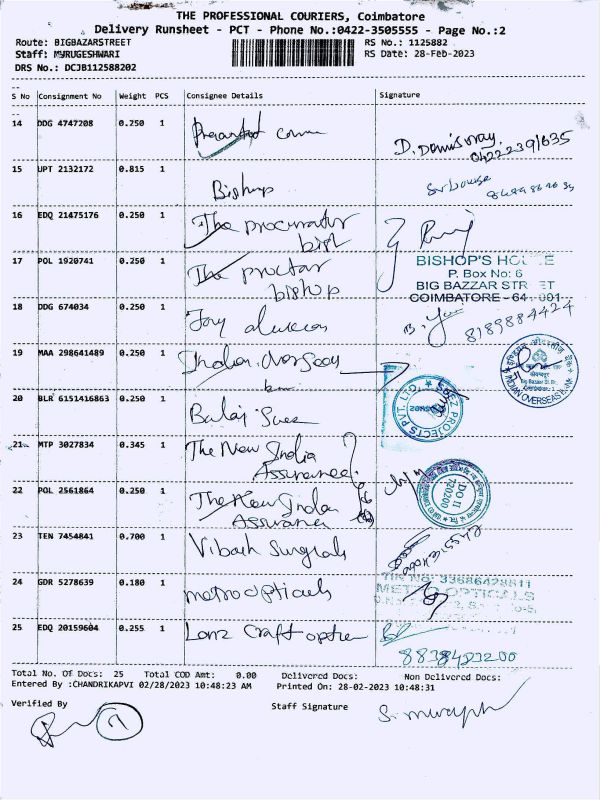 THE PROFESSIONAL COURIERS, Coimbatore
Delivery Runsheet - PCT - Phone No.:0422-3505555 - Page No.:2
Route: BIGBAZARSTREET
Staff: MYRUGESHWARI
DRS No.: DCJB112588202
RS No.: 1125882
RS Date: 28-Feb-2023
S No Consignment No Weight PCS Consignee Details Signature
14 DDG 4747208 0.250 1
D.
04222391635
15 UPT 2132172 0.815 1 Bishup
16 EDQ 21475176 0.250 1 The procurator
bish
17 POL 1920741 0.250 1 The proctar
bishop
BISHOP'S HOUSE
P. Box No: 6
BIG BAZZAR STREET
COIMBATORE - 641 001
18 DDG 674034 0.250 1
8189884424
19 MAA 298641489 0.250 1 Indian overseas
INDIAN OVERSEAS BANK
20 BLR 6151416863 0.250 1 Balaj
PROJECTS PVT. LTD.
21 MTP 3027834 0.345 1 The New India
Assurance
22 POL 2561864 0.250 1 The New India
Assurance
DO II
720200
23 TEN 7454841 0.700 1 Surgicals
24 GDR 5278639 0.180 1 metro opticals
METRO OPTICALS
25 EDQ 20159604 0.255 1 Lenz Craft
8838483200
Total No. Of Docs: 25 Total COD Amt: 0.00 Delivered Docs: Non Delivered Docs:
Entered By :CHANDRIKAPVI 02/28/2023 10:48:23 AM Printed On: 28-02-2023 10:48:31
Verified By
Staff Signature